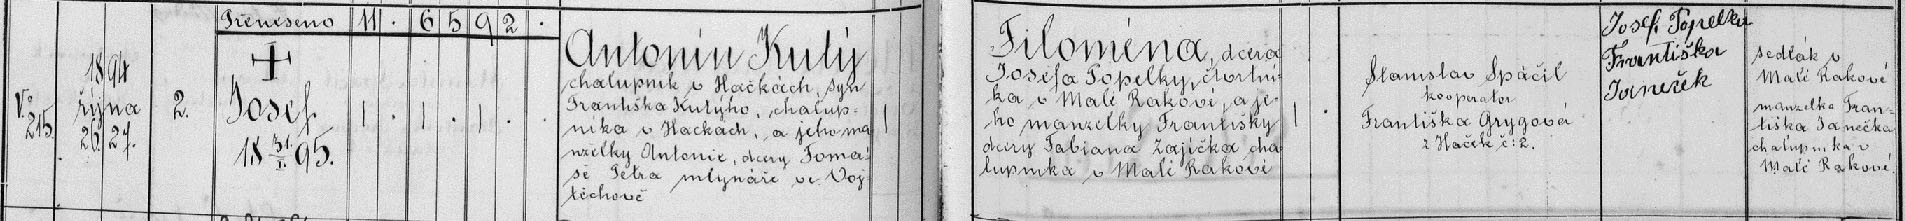 Přeneseno 11 . 6 5 9 2 .
V. 215.
1894
října
26. 27.
2.
Josef
18 31./I. 95.
1 . 1 . . .
Antonín Kutý
chalupník v Hačkách, syn
Františka Kutýho, chalup-
níka v Hačkách, a jeho ma
nželky Antonie, dcery Tomá-
še Petra mlynáře ve Voj-
těchově
1
Filoména, dcera
Josefa Popelky, čtvrtní-
ka v Malé Rakové, a je-
ho manželky Františky
dcery Fabiana Zajíčka cha
lupníka v Malé Rakové
1 .
Stanislav Spáčil
kooperator
Františka Grygová
z Haček č: 2.
Josef Popelka
Františka
Janeček
sedlák v
Malé Rakové
manželka Fran-
tiška Janečka
chalupníka v
Malé Rakové